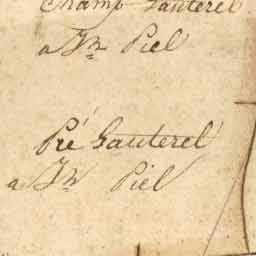 Champ Gauterel
a Jn Piel
Pré Gauterel
a Jn Piel